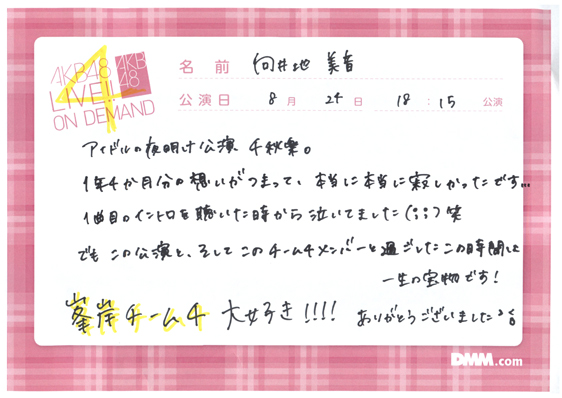 AKB48
LIVE!!
ON DEMAND
AKB
48
4
名前 向井地 美音
公演日 8月 24日 18:15 公演
アイドルの夜明け公演 千秋楽。
1年4か月分の想いがつまって、本当に本当に寂しかったです...
1曲目のイントロを聴いた時から泣いてました(;;)笑
でもこの公演と、そしてこのチーム4メンバーと過ごしたこの時間は
一生の宝物です!
峯岸チーム4 大好き!!!! ありがとうございました
DMM.com